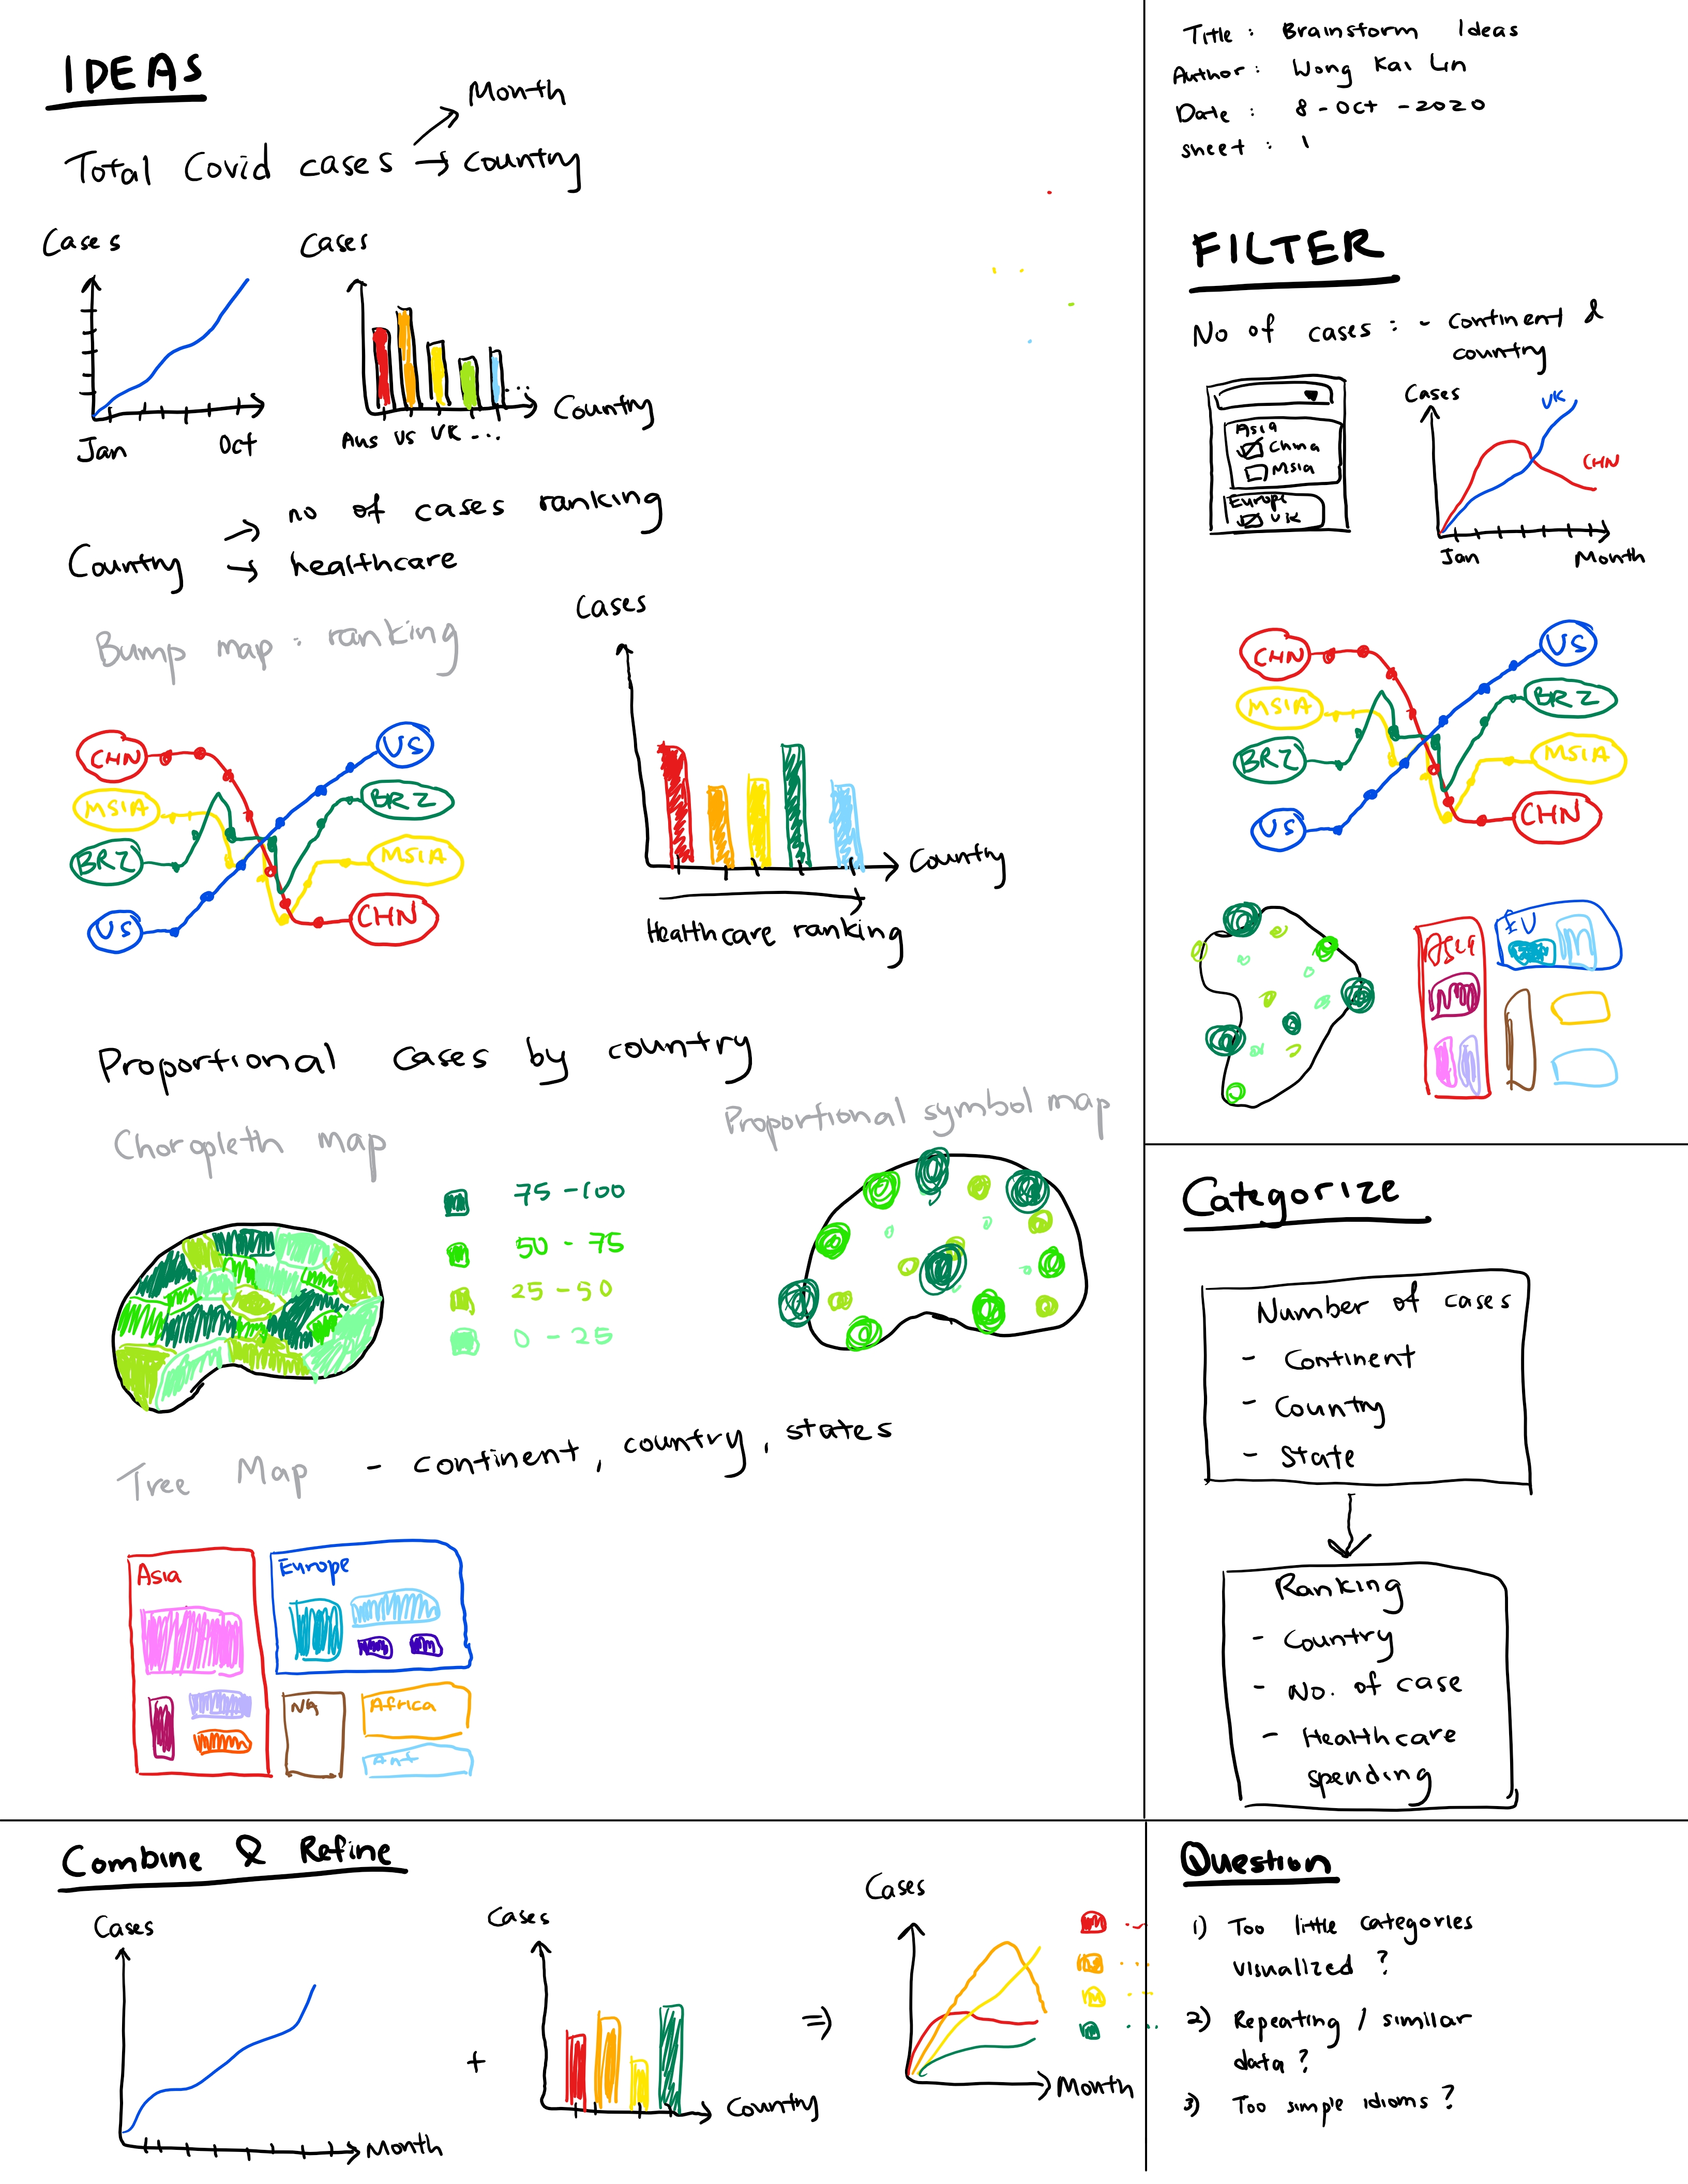 IDEAS
Month
Total Covid cases → country
Cases
Jan
Oct
Cases
Country
Aus US UK ...
Country → no of cases ranking
→ healthcare
Bump map : ranking
CHN
MSIA
BRZ
US
US
BRZ
MSIA
CHN
Cases
Country
Healthcare ranking
Proportional cases by country
Choropleth map
75 - 100
50 - 75
25 - 50
0 - 25
Proportional symbol map
Tree Map - continent, country, states
Asia
Europe
NA
Africa
Ant
Title : Brainstorm Ideas
Author : Wong Kai Lin
Date : 8 - Oct - 2020
sheet : 1
FILTER
No of cases : - continent &
country
Asia
China
Msia
Europe
UK
Cases
UK
CHN
Jan
Month
CHN
MSIA
BRZ
US
US
BRZ
MSIA
CHN
Asia
EU
Categorize
Number of cases
- Continent
- Country
- State
Ranking
- Country
- No. of case
- Healthcare
spending
Combine & Refine
Cases
Month
+
Cases
Country
⇒
Cases
Month
Question
1) Too little categories
visualized ?
2) Repeating / similar
data ?
3) Too simple idioms ?